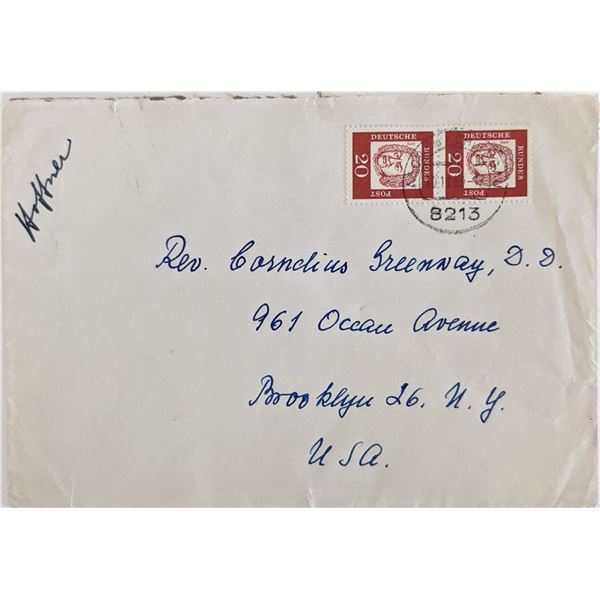 Hoffner
DEUTSCHE
BUNDES
POST
20
DEUTSCHE
BUNDES
POST
20
8213
Rev. Cornelius Greenway, D. D.
961 Occan Avenue
Brooklyn 26. N. Y.
USA.